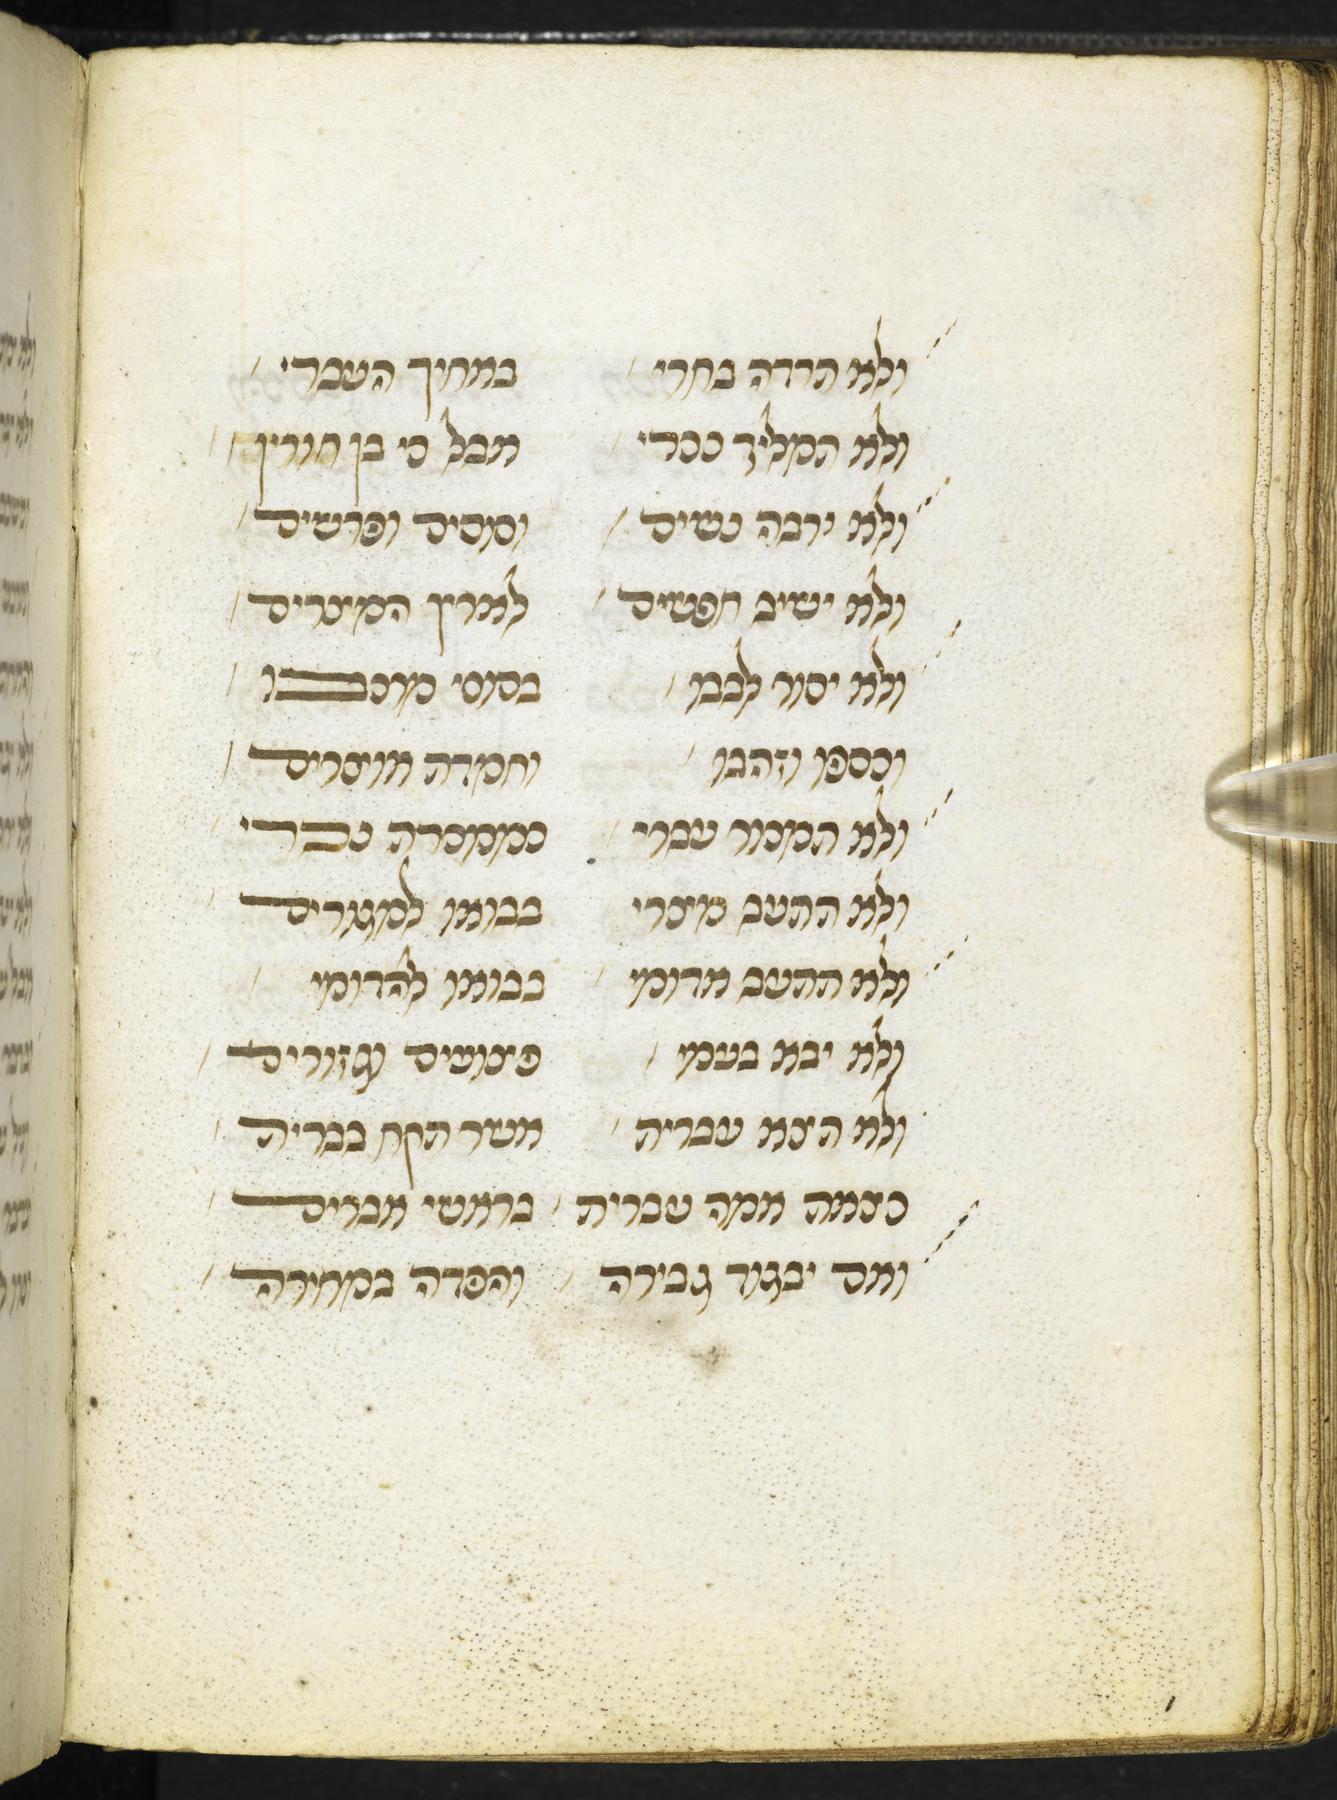 ולא תרדה בחרי באחיך העברי
ולא תמליך נכרי אבל כי בן חורין
ולא ירבה נשים וסוסים ופרשים
ולא ישיב חפשים לארץ המצרים
ולא יסור לבבו בסוסי מרכבו
וכספו וזהבו וחמדה ואוצרים
ולא תמכור עברי כממכרה נכרי
ולא תתעב מצרי בבואו לסגורים
ולא תתעב אדומי בבואו להדומי
ולא יבא בעמי פצועים וגזורים
ולא תצא עבריה אשר תקח בבריה
כצאת אמה עבריה בראשי אברים
ואם יבגוד גבירה והפדה במחירה